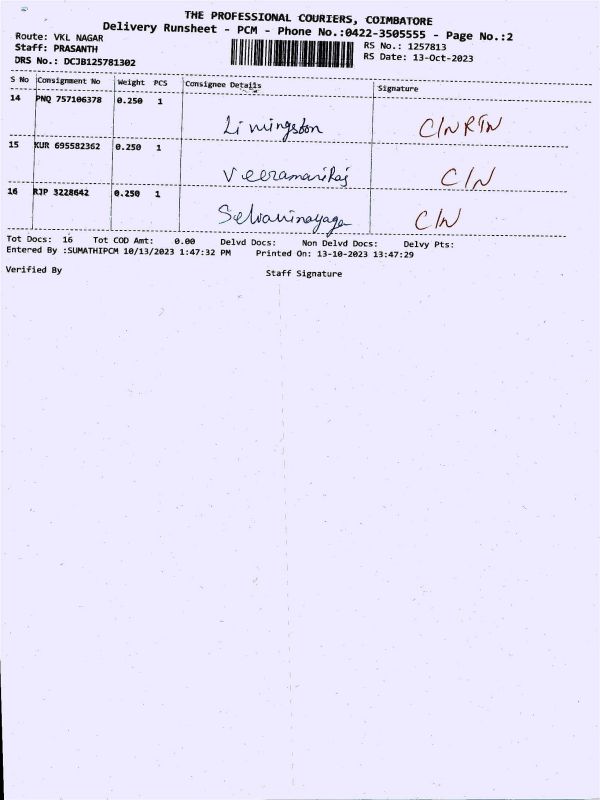 THE PROFESSIONAL COURIERS, COIMBATORE
Delivery Runsheet - PCM - Phone No.:0422-3505555 - Page No.:2
Route: VKL NAGAR
Staff: PRASANTH
DRS No.: DCJB125781302
RS No.: 1257813
RS Date: 13-Oct-2023
S No Consignment No Weight PCS Consignee Details Signature
14 PNQ 757106378 0.250 1
Livingston C/N RTN
15 KUR 695582362 0.250 1
Veeramaniraj C/N
16 RJP 3228642 0.250 1
Selvavinayaga C/N
Tot Docs: 16 Tot COD Amt: 0.00 Delvd Docs: Non Delvd Docs: Delvy Pts:
Entered By :SUMATHIPCM 10/13/2023 1:47:32 PM Printed On: 13-10-2023 13:47:29
Verified By Staff Signature